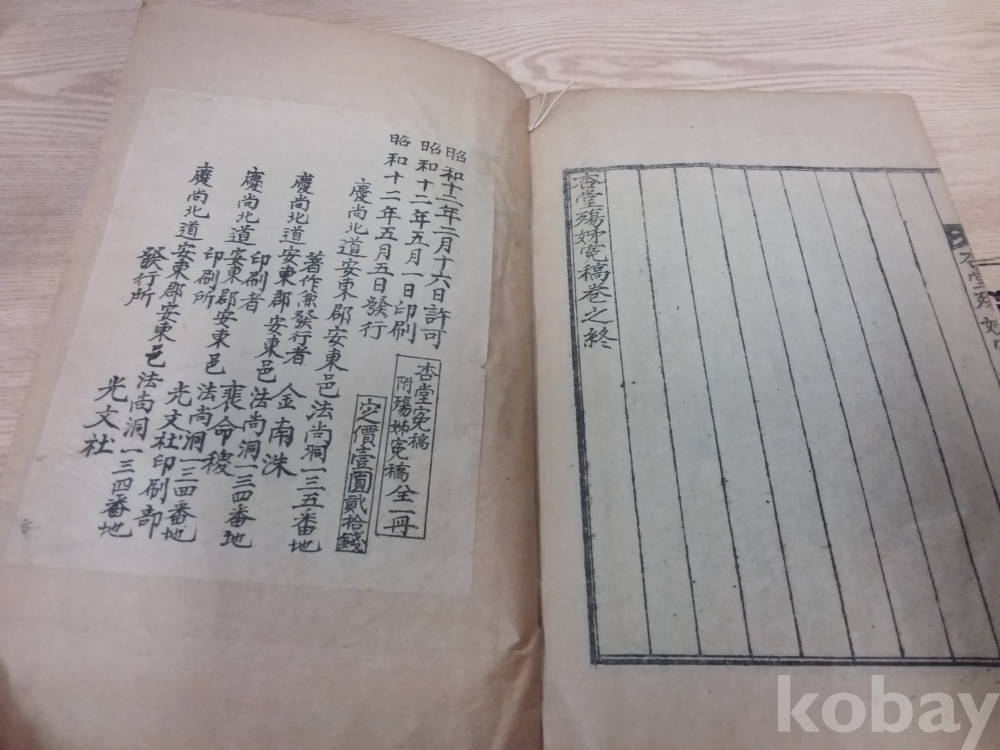 杏堂殤姊寃稿卷之終
杏堂殤姊
昭和十二年二月十六日許可
昭和十二年五月一日印刷
昭和十二年五月五日發行
杏堂寃稿
附殤姊寃稿 全一冊
定價壹圓貳拾錢
慶尚北道安東郡安東邑法尚洞一三五番地
著作兼發行者 金南洙
慶尚北道安東郡安東邑法尚洞一三四番地
印刷者 裵命稷
慶尚北道安東郡安東邑法尚洞一三四番地
印刷所 光文社印刷部
慶尚北道安東郡安東邑法尚洞一三四番地
發行所 光文社
kobay